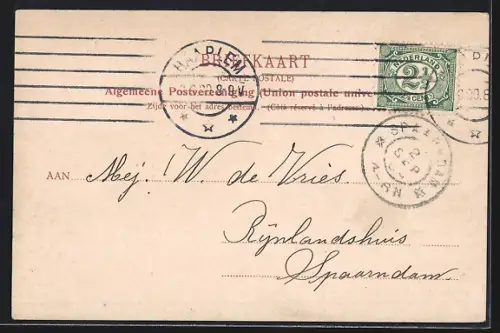 BRIEFKAART
(CARTE POSTALE)
Algemeene Postvereeniging (Union postale universelle)
Zijde voor het adres bestemd. (Côté réservé à l'adresse.)
HAARLEM
8-9 V
NEDERLAND
2½
CENT
SPAARNDAM
2
SEP
AAN Mej. W. de Vries.
Rijnlandshuis
Spaarndam.